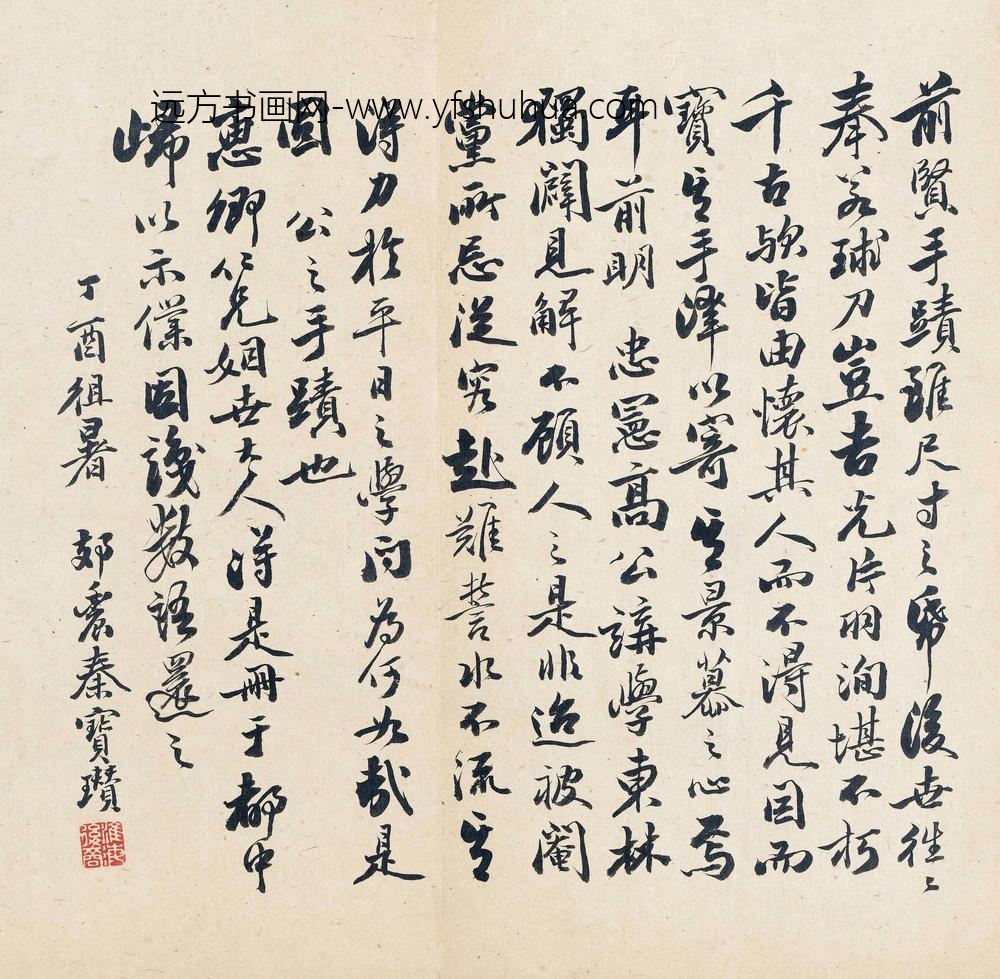 远方书画网-www.yfshuhua.com
前賢手蹟雖尺寸之帋後世往〻
奉若球刀豈吉光片羽洵堪不朽
千古歟皆由懷其人而不得見因而
寶其手澤以寄其景慕之心焉
耳前明 忠憲高公講學東林
獨闢見解不顧人之是非迨被閹
黨所忌從容赴難誓水不流其
得力於平日之學問為何如哉是
固 公之手蹟也
惠卿仁兄姻世大人得是冊于都中
歸以示僕因識數語還之
丁酉徂暑 郊農秦寶瓚
淮海後裔